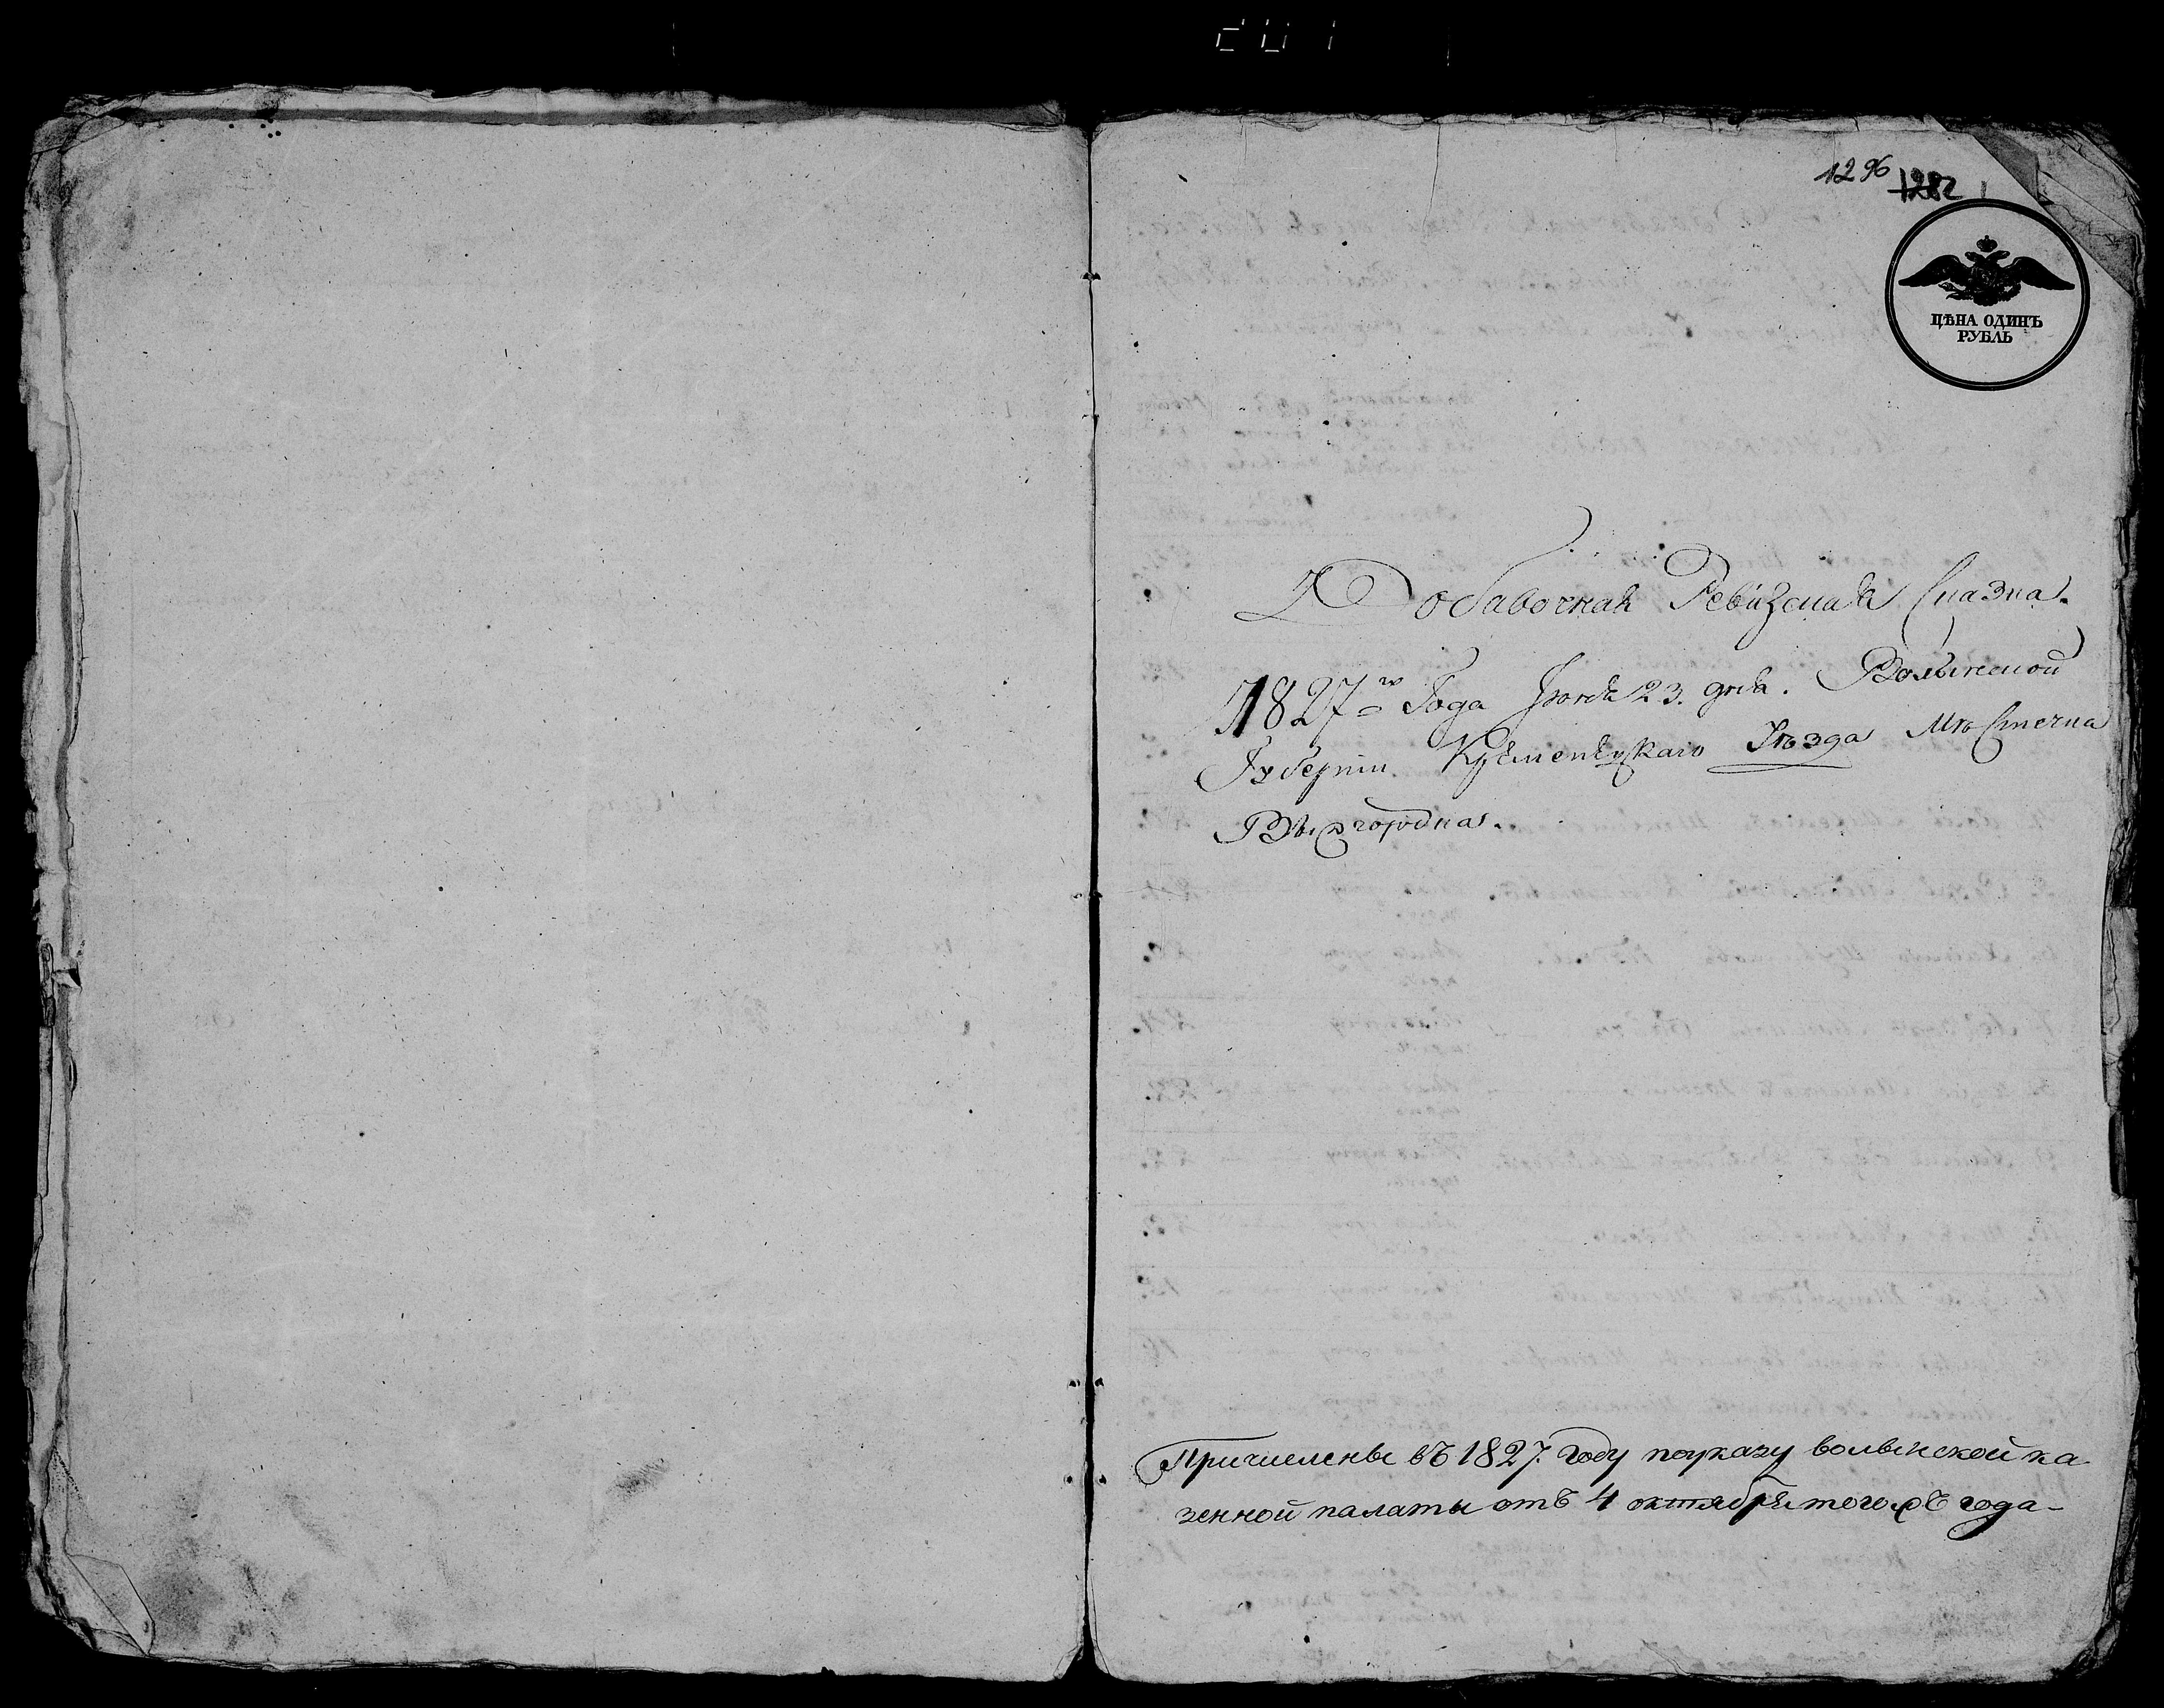 1296
1282
ЦѢНА ОДИНЪ
РУБЛЬ
Добавочная Ревизская Сказка.
1827го Года Июня 23. дня. Волынской
Губернии Кременецкаго Уѣзда Мѣстечка
Вышгородка.
Причислены въ 1827. году поуказу волынской ка
зенной палаты отъ 4 октября тогожъ года